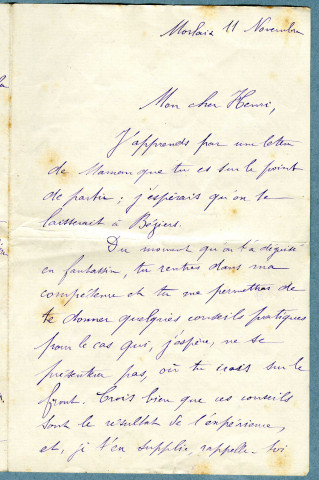 Morlaix 11 Novembre
Mon cher Henri,
J'apprends par une lettre
de Maman que tu es sur le point
de partir ; j'espérais qu'on te
laisserait à Béziers.
Du moment qu'on t'a déguisé
en fantassin, tu rentres dans ma
compétence et tu me permettras de
te donner quelques conseils pratiques
pour le cas qui, j'espère, ne se
présentera pas, où tu irais sur le
front. Crois bien que ces conseils
sont le résultat de l'expérience,
et, je t'en supplie, rappelle-toi